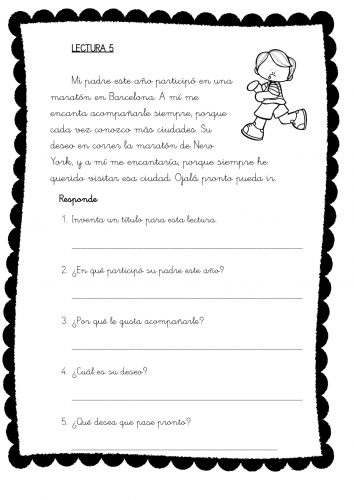 LECTURA 5
Mi padre este año participó en una
maratón en Barcelona. A mí me
encanta acompañarle siempre, porque
cada vez conozco más ciudades. Su
deseo en correr la maratón de New
York, y a mí me encantaría, porque siempre he
querido visitar esa ciudad. Ojalá pronto pueda ir.
Responde
1. Inventa un título para esta lectura.
2. ¿En qué participó su padre este año?
3. ¿Por qué le gusta acompañarle?
4. ¿Cuál es su deseo?
5. ¿Qué desea que pase pronto?